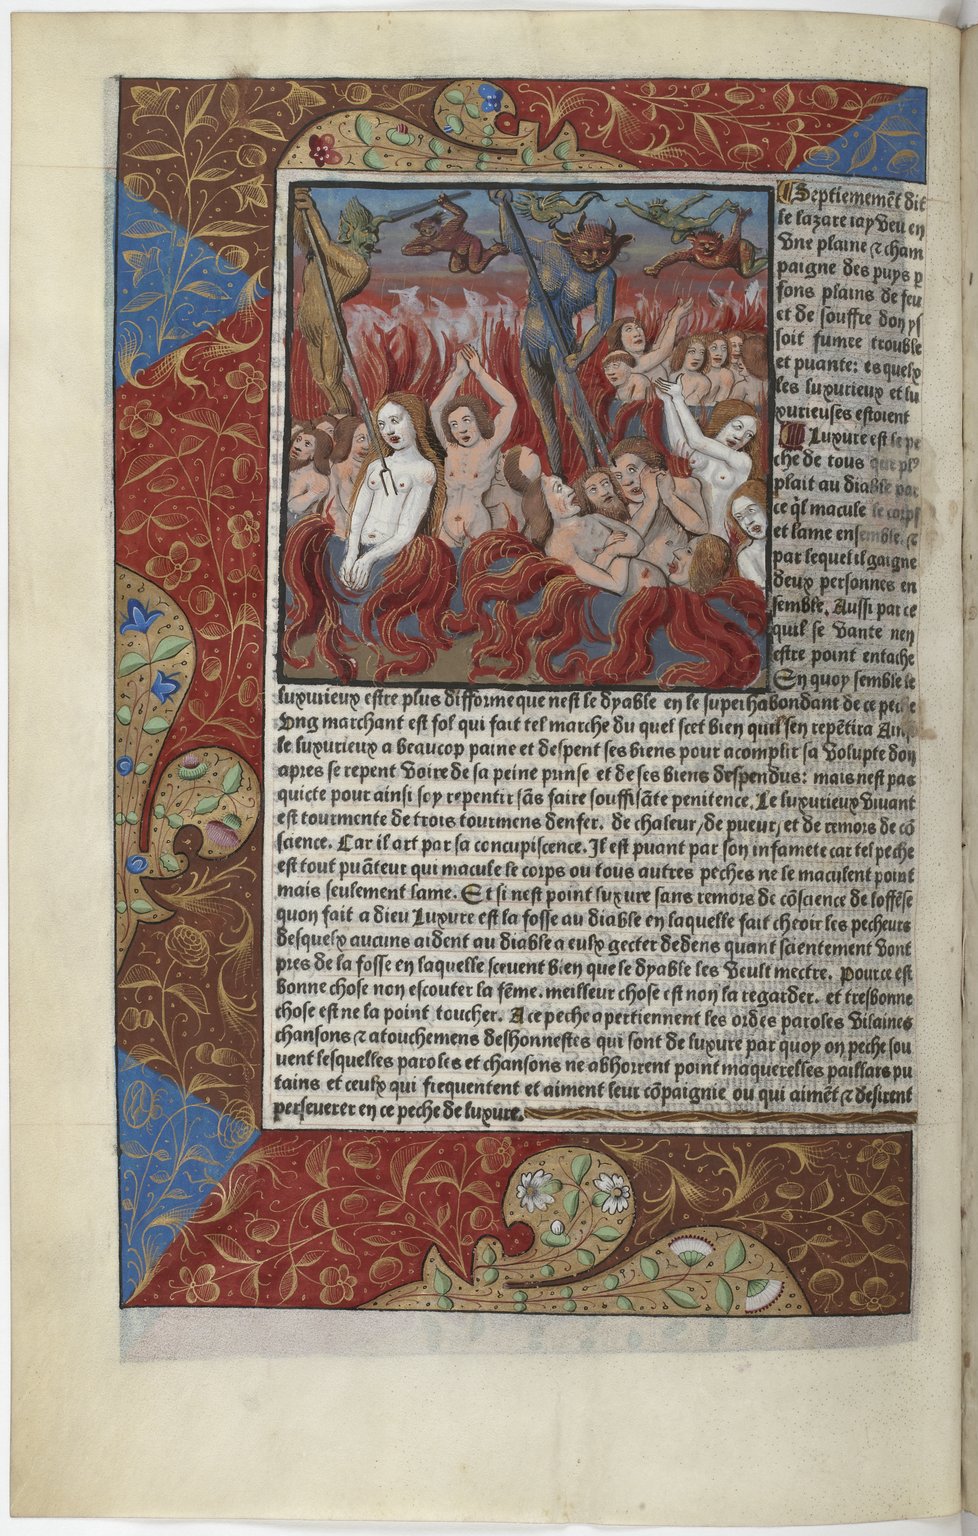 Septiememēt dit
le lazare iay veu en
vne plaine ⁊ cham
paigne des puys p
fons plains de feu
et de souffre don ys
soit fumee trouble
et puante: es quelx
les luxurieux et lu
xurieuses estoient
Luxure est le pe
che de tous que pl⁹
plait au diable par
ce q̄l macule le corps
et lame ensemble. ⁊
par lequel il gaigne
deux personnes en
semble. Aussi par ce
quil se vante nen
estre point entache
En quoy semble le
luxurieux estre plus difforme que nest le dyable en le superhabondant de ce peche
Vng marchant est fol qui fait tel marche du quel scet bien quil sen repētira Ainsi
le luxurieux a beaucop paine et despent ses biens pour acomplir sa volupte don
apres se repent voire de sa peine prinse et de ses biens despendus: mais nest pas
quicte pour ainsi soy repentir sās faire souffisāte penitence. Le luxurieux viuant
est tourmente de trois tourmens denfer. de chaleur/ de pueur/ et de remors de cō
science. Car il art par sa concupiscence. Il est puant par son infamete car tel peche
est tout puāteur qui macule le corps ou tous autres peches ne le maculent point
mais seulement lame. Et si nest point luxure sans remors de cōscience de loffēse
quon fait a dieu Luxure est la fosse au diable en laquelle fait cheoir les pecheurs
desquelx aucuns aident au diable a eulx gecter dedens quant scientement vont
pres de la fosse en laquelle sceuent bien que le dyable les veult mectre. Pource est
bonne chose non escouter la fēme. meilleur chose est non la regarder. et tresbonne
chose est ne la point toucher. A ce peche apertiennent les ordes paroles vilaines
chansons ⁊ atouchemens deshonnestes qui sont de luxure par quoy on peche sou
uent lesquelles paroles et chansons ne abhorrent point maquerelles paillars pu
tains et ceulx qui frequentent et aiment leur cōpaignie ou qui aimēt ⁊ desirent
perseuerer en ce peche de luxure.